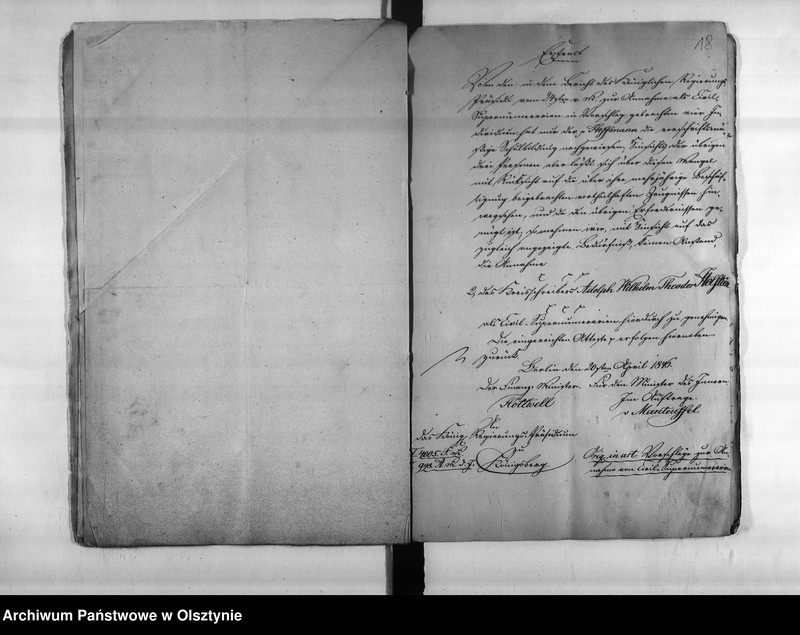 18
Extract
Von den in dem Bericht des Königlichen Regierungs-
Präsidii vom 24sten v. M. zur Annahme als Civil-
Supernumerarien in Vorschlag gebrachten vier In-
dividuen hat nur der p Hoffmann die vorschriftsmä-
ßige Schulbildung nachgewiesen. Hinsichts der übrigen
drei Personen aber läßt sich über diesen Mangel
mit Rücksicht auf die über ihre mehrjährige Beschäf-
tigung beigebrachten vortheilhaften Zeugnisse hin-
wegsehen, und da den übrigen Erfordernissen ge-
nügt ist, so nehmen wir, mit Hinsicht auf das
zugleich angezeigte Bedürfniß, keinen Anstand,
die Annahme
2, des Kreisschreibers Adolph Wilhelm Theodor
als Civil-Supernumerarien hierdurch zu genehmigen.
Die eingereichten Atteste p erfolgen hierneben
zurück.
Berlin den 20sten April 1846.
Der Finanz-Minister. Für den Minister des Innern
Im Auftrage
Flottwell v Manteuffel.
An
das Königl. Regierungs-Präsidium
zu
Königsberg
Orig. in act. Vorschläge zur An-
nahme von Civil-Supernumerarien
Archiwum Państwowe w Olsztynie